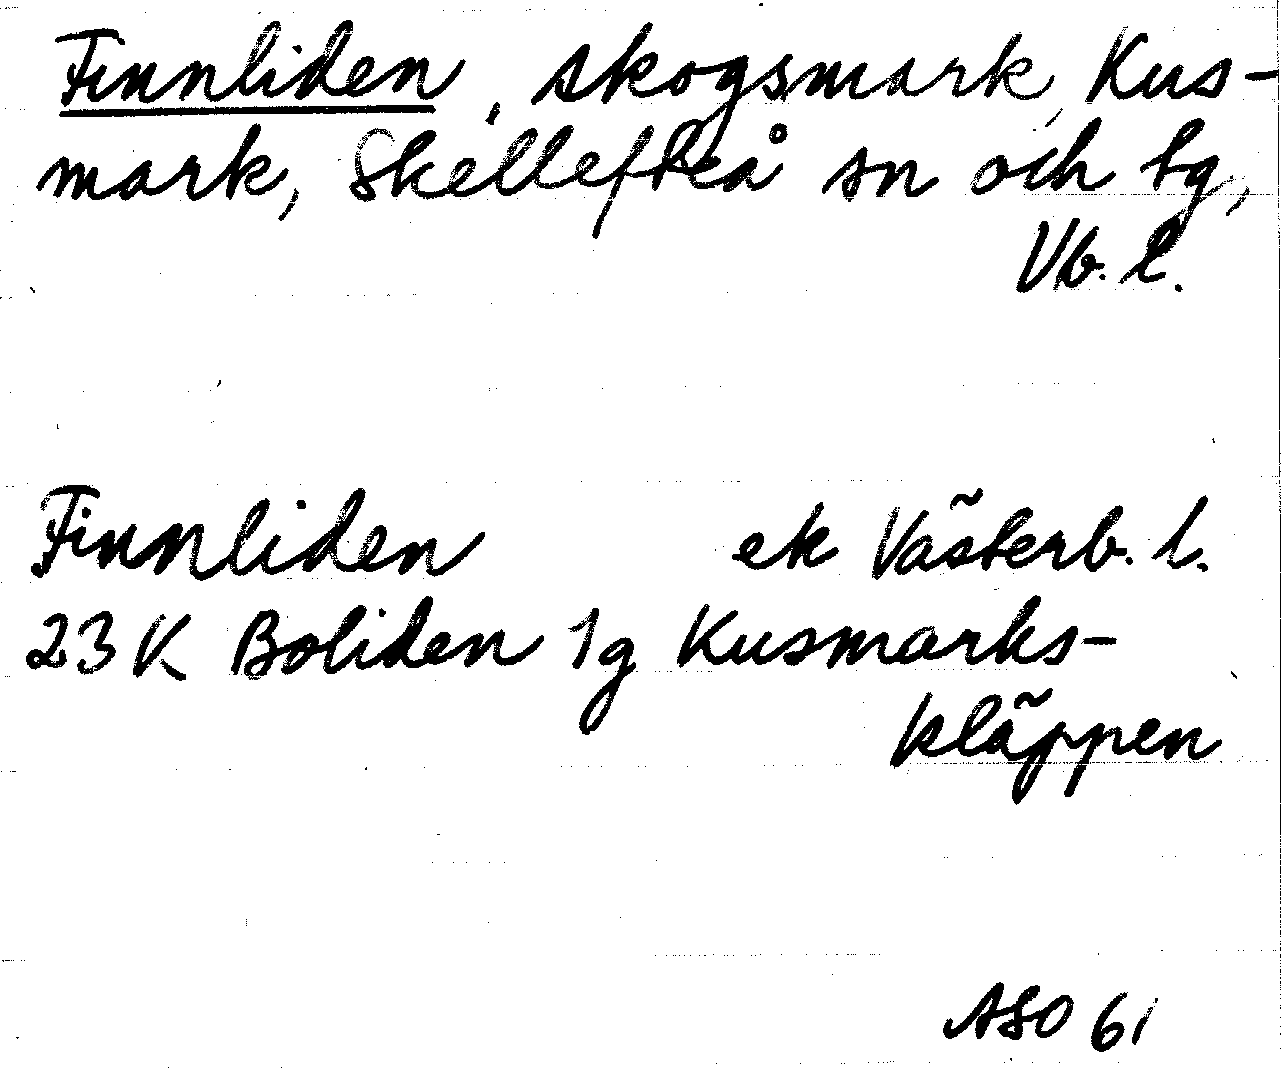 Finnliden, skogsmark, Kus-
mark, Skellefteå sn och tg,
Vb. l.
Finnliden ek Västerb. l.
23 K Boliden 1g Kusmarks-
kläppen
ASO 61